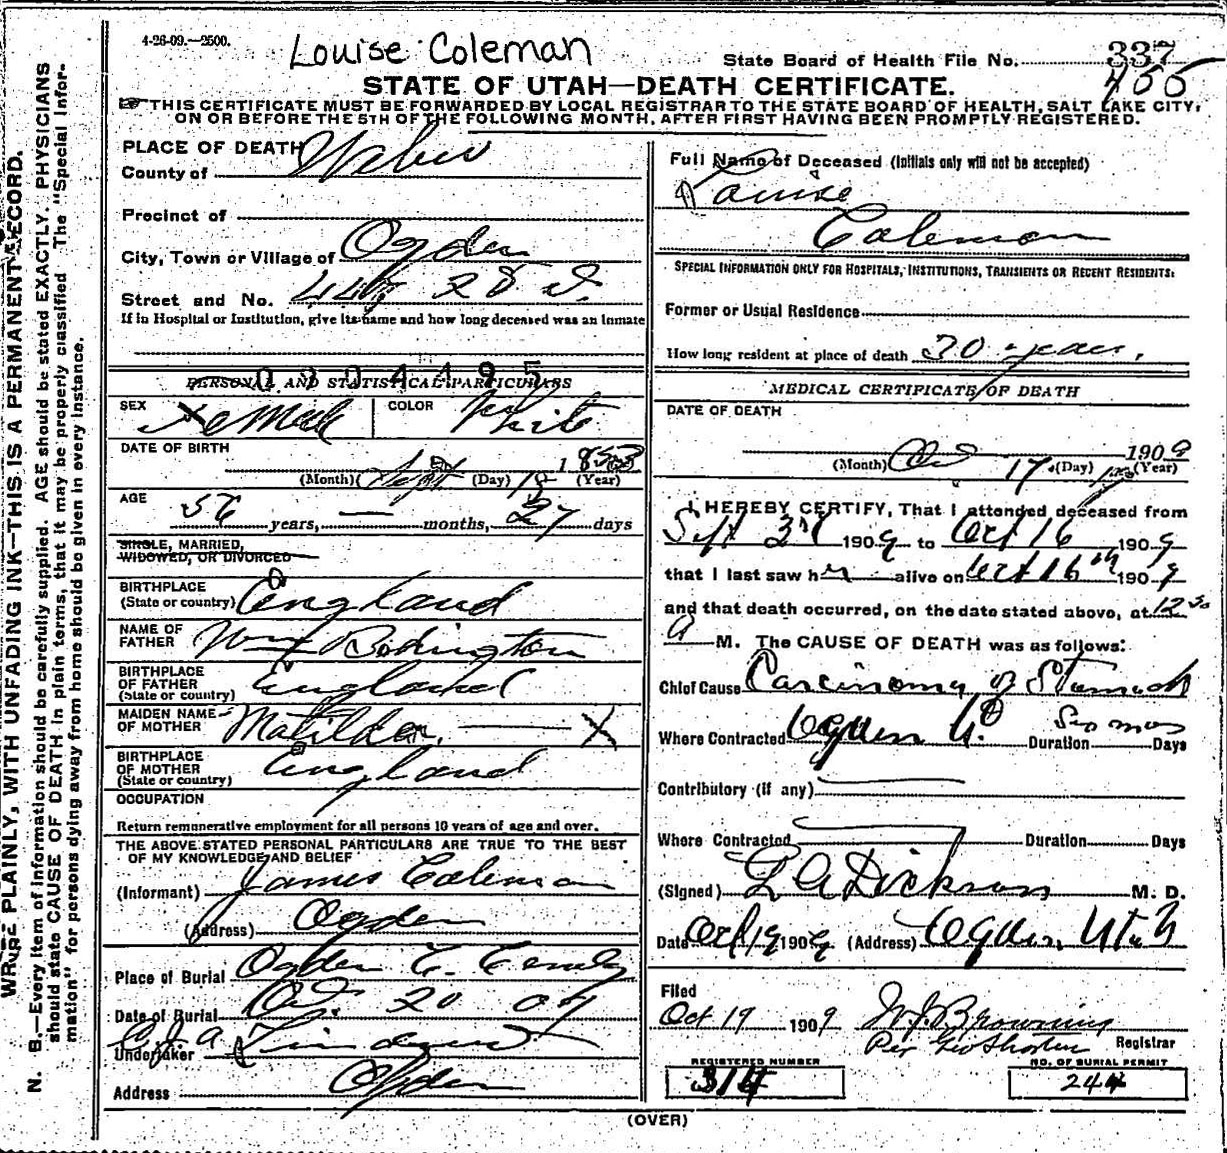 4-26-09.—2500.
Louise Coleman
State Board of Health File No. 337
455
STATE OF UTAH—DEATH CERTIFICATE.
THIS CERTIFICATE MUST BE FORWARDED BY LOCAL REGISTRAR TO THE STATE BOARD OF HEALTH, SALT LAKE CITY,
ON OR BEFORE THE 5TH OF THE FOLLOWING MONTH, AFTER FIRST HAVING BEEN PROMPTLY REGISTERED.
WRITE PLAINLY, WITH UNFADING INK—THIS IS A PERMANENT RECORD.
N. B.—Every item of information should be carefully supplied. AGE should be stated EXACTLY. PHYSICIANS
should state CAUSE OF DEATH in plain terms, that it may be properly classified. The "Special Infor-
mation" for persons dying away from home should be given in every instance.
PLACE OF DEATH
County of Weber
Precinct of
City, Town or Village of Ogden
Street and No. 28 St.
If in Hospital or Institution, give its name and how long deceased was an inmate
PERSONAL AND STATISTICAL PARTICULARS
0304495
SEX Female COLOR White
DATE OF BIRTH
Sept 18 1853
(Month) (Day) (Year)
AGE
56 years, — months, 27 days
SINGLE, MARRIED,
WIDOWED, OR DIVORCED
BIRTHPLACE
(State or country) England
NAME OF
FATHER Wm Bodington
BIRTHPLACE
OF FATHER
(State or country) England
MAIDEN NAME
OF MOTHER Matilda — X
BIRTHPLACE
OF MOTHER
(State or country) England
OCCUPATION
Return remunerative employment for all persons 10 years of age and over.
THE ABOVE STATED PERSONAL PARTICULARS ARE TRUE TO THE BEST
OF MY KNOWLEDGE AND BELIEF
(Informant) James Coleman
(Address) Ogden
Place of Burial Ogden C.
Date of Burial Oct. 20 09
Undertaker
Address Ogden
Full Name of Deceased (Initials only will not be accepted)
Louise
Coleman
SPECIAL INFORMATION ONLY FOR HOSPITALS, INSTITUTIONS, TRANSIENTS OR RECENT RESIDENTS:
Former or Usual Residence
How long resident at place of death 30 years.
MEDICAL CERTIFICATE OF DEATH
DATE OF DEATH
Oct 17 1909
(Month) (Day) (Year)
I HEREBY CERTIFY, That I attended deceased from
Sept 3rd 1909 to Oct 16 1909
that I last saw her alive on Oct 16th 1909
and that death occurred, on the date stated above, at 12 30
A M. The CAUSE OF DEATH was as follows:
Chief Cause Carcinoma of Stomach
Where Contracted Ogden U. Duration Six mos Days
Contributory (if any)
Where Contracted Duration Days
(Signed) L A Dickson M. D.
Date Oct 19 1909 (Address) Ogden, Utah
Filed
Oct 19 1909 W J Browning
Per Geo Shorten
Registrar
REGISTERED NUMBER
314
NO. OF BURIAL PERMIT
244
(OVER)